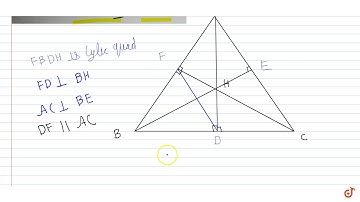 FBDH is Cyclic quad
F
E
FD ⊥ BH
H
AC ⊥ BE
DF || AC
B
D
C